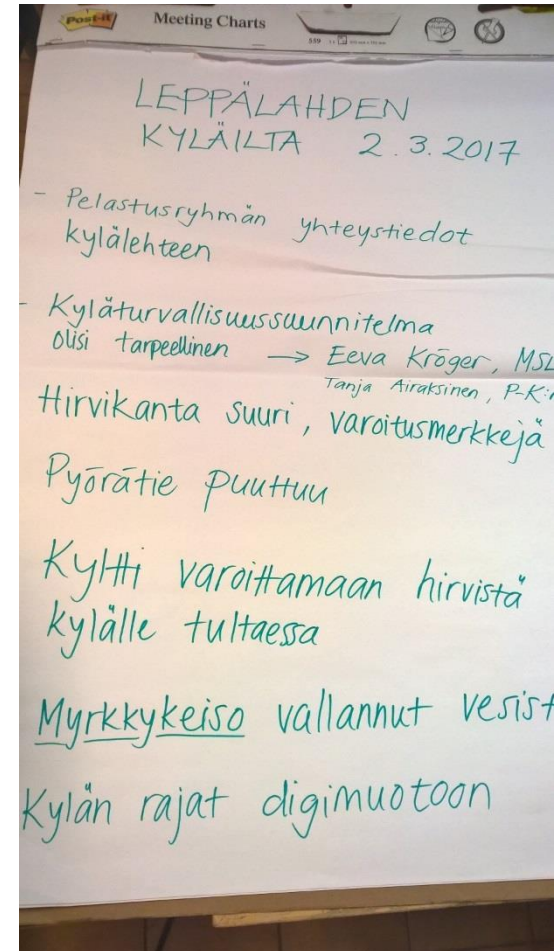 Post-it
Meeting Charts
559
LEPPÄLAHDEN
KYLÄILTA 2.3.2017
- Pelastusryhmän yhteystiedot
kylälehteen
- Kyläturvallisuussuunnitelma
olisi tarpeellinen → Eeva Kröger, MSL
Tanja Airaksinen, P-K:n
Hirvikanta suuri, varoitusmerkkejä
Pyörätie puuttuu
Kyltti varoittamaan hirvistä
kylälle tultaessa
Myrkkykeiso vallannut vesist
Kylän rajat digimuotoon